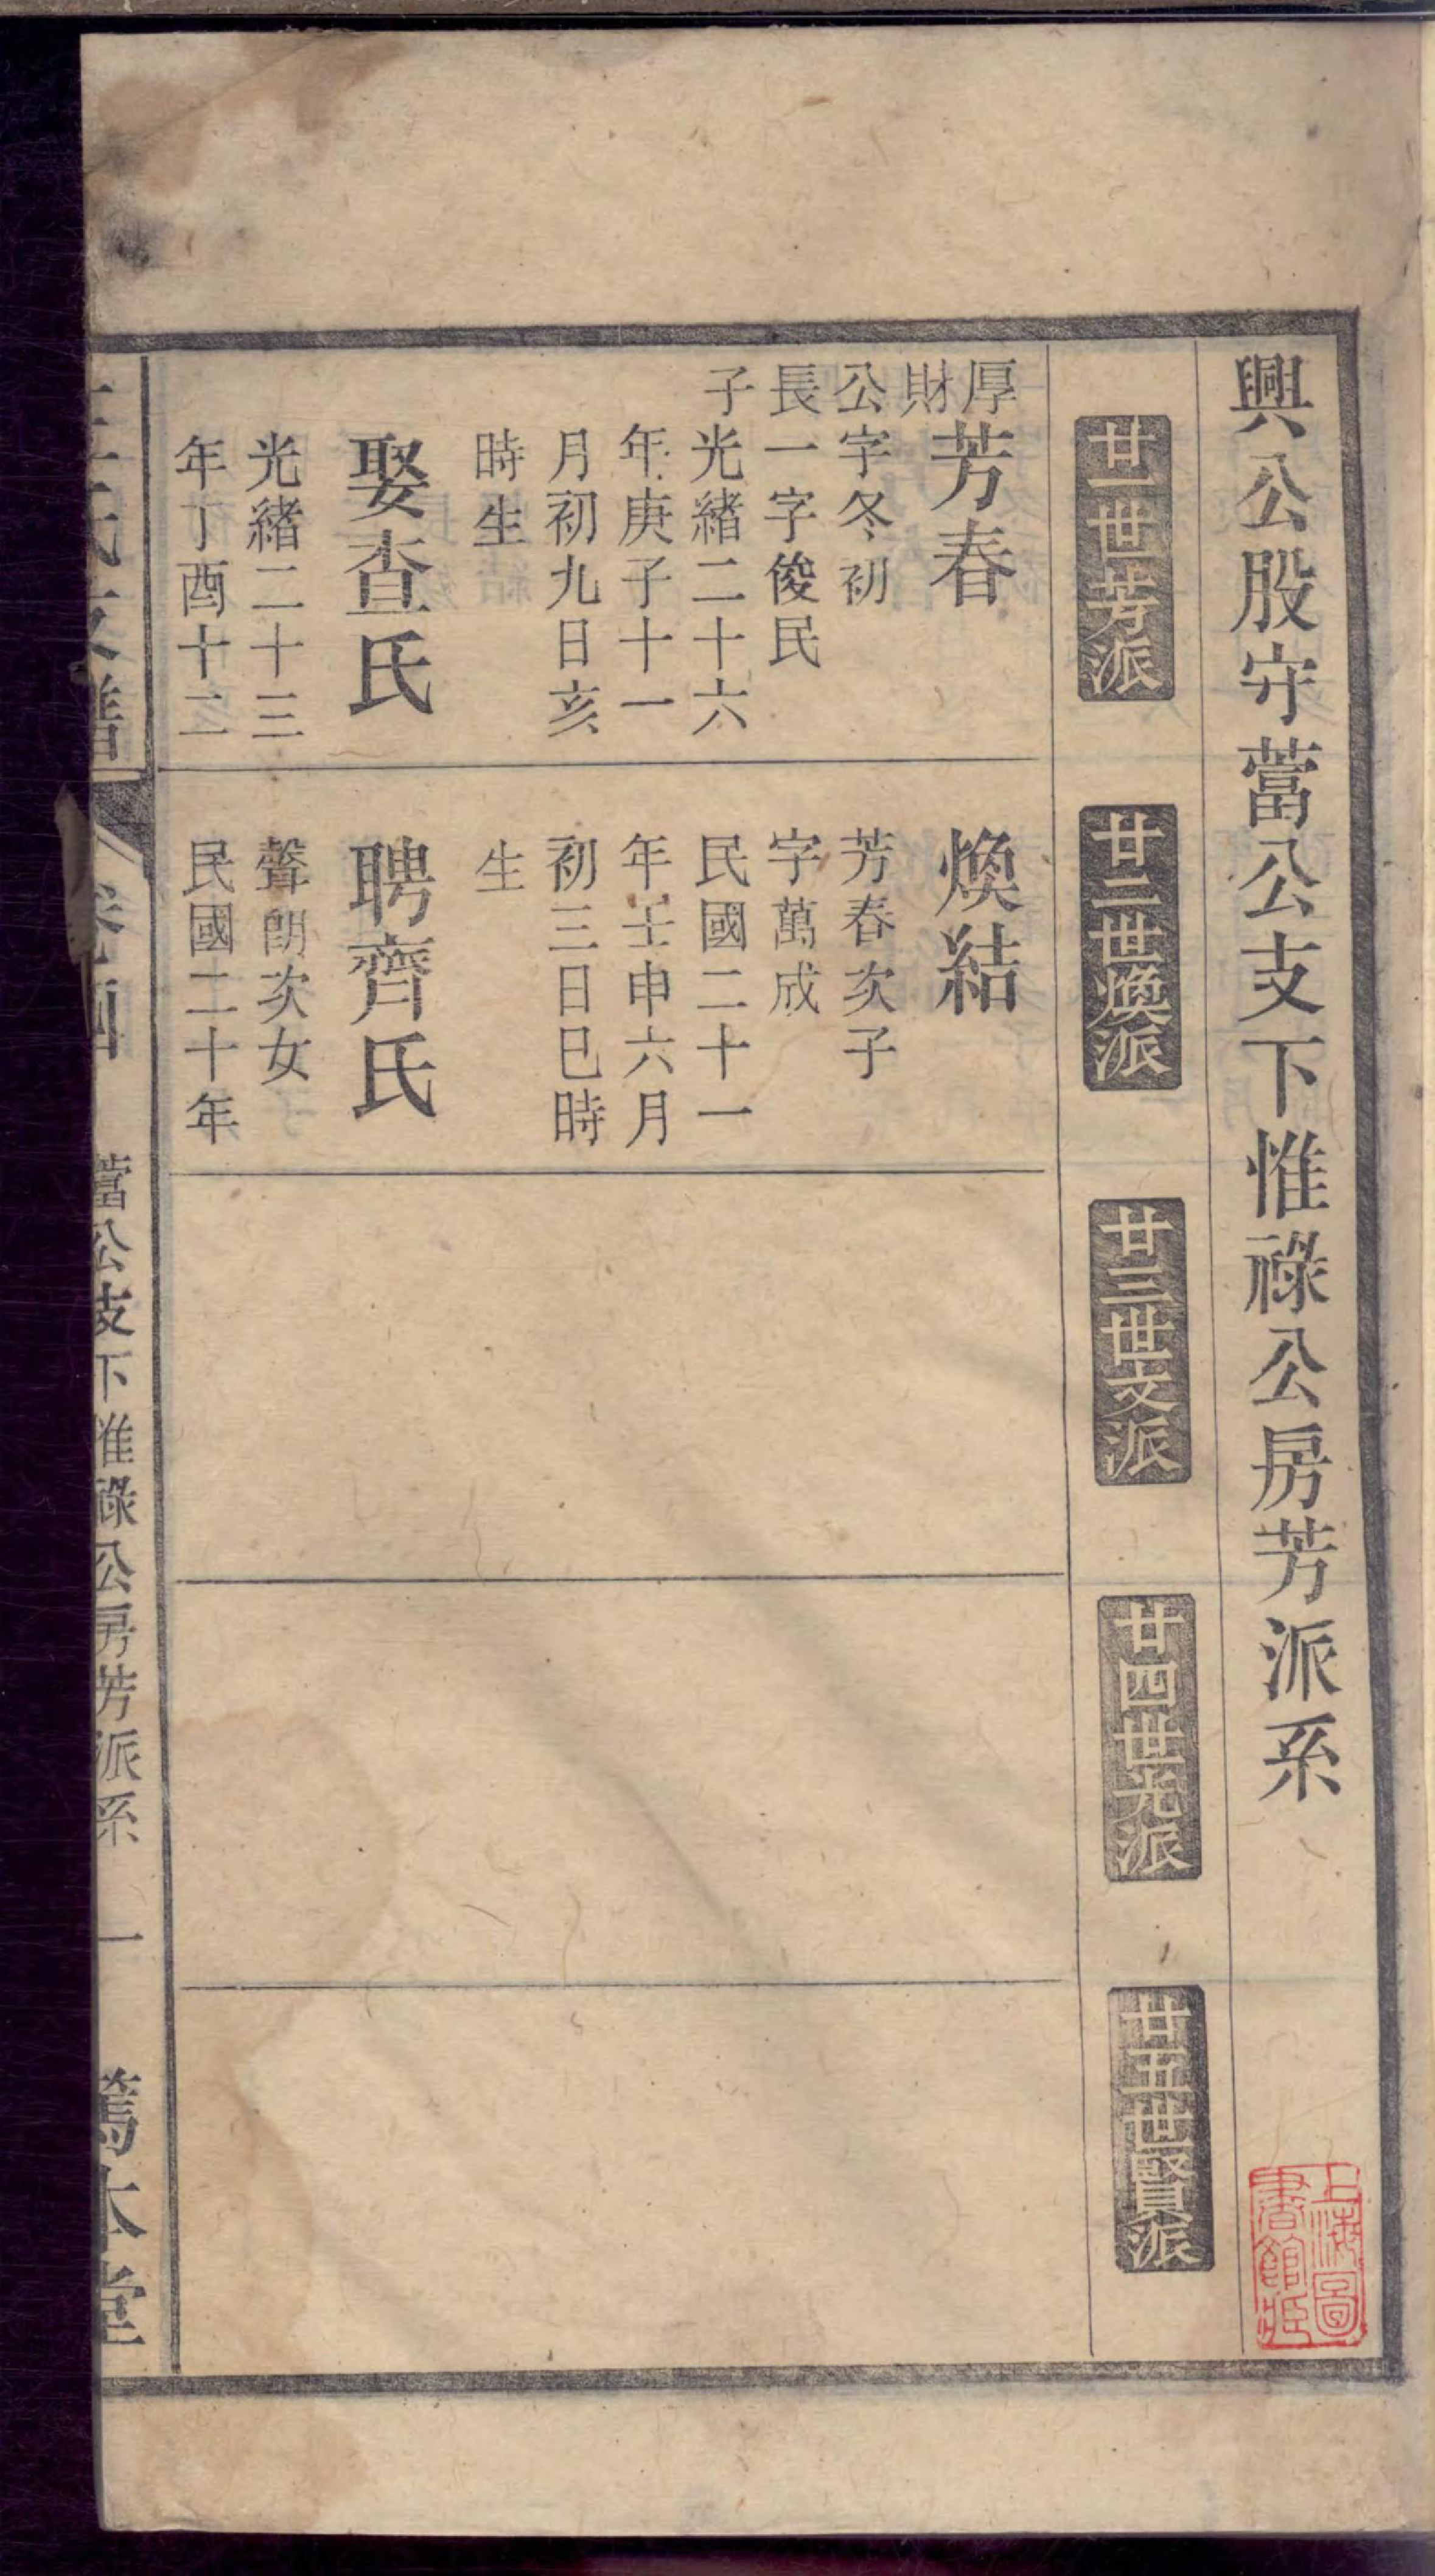 興公股守蒿公支下惟祿公房芳派系
上海圖
書館藏
廿一世芳派
廿二世煥派
廿三世文派
廿四世光派
廿五世賢派
厚
財
公
長
子
芳春
字冬初
一字俊民
光緒二十六
年庚子十一
月初九日亥
時生
娶查氏
光緒二十三
年丁酉十二
煥結
芳春次子
字萬成
民國二十一
年壬申六月
初三日巳時
生
聘齊氏
聲朗次女
民國二十年
氏支譜
卷四
蒿公支下惟祿公房芳派系
一
篤本堂